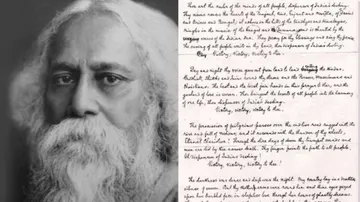 Thou art the ruler of the minds of all people, dispenser of India's destiny.
Thy name rouses the hearts of the Punjab, Sind, Gujrat and Maratha, of Dravid
and Orissa and Bengal; it echoes in the hills of the Vindhyas and Himalayas,
mingles in the music of and is chanted by the
waves of the Indian Sea. They pray for thy blessings and sing thy praise,
the saving of all people waits in thy hand, thou dispenser of India's destiny.
Victory, Victory, Victory to thee.
Day and night thy voice goes out from land to land calling the Hindus,
Buddhists, Sikhs and Jains round thy throne and the Parsees, Mussalmans and
Christians. The East and the West join hands in their prayer to thee, and the
garland of love is woven. Thou bringest the hearts of all people into the harmony
of one life, thou dispenser of India's destiny.
Victory, Victory, Victory to thee.
The procession of pilgrims passes over the endless road rugged with the
rise and fall of nations; and it resounds with the thunder of thy wheels,
Eternal Charioteer! Through the dire days of doom thy trumpet sounds and
men are led by thee across death. Thy finger points the path to all people,
Oh dispenser of India's destiny!
Victory, victory, victory to thee!
The darkness was dense and deep was the night. My country lay in a deathlike
silence of swoon. But thy mother arms were round her and thine eyes gazed
upon her troubled face in sleepless love through her hours of ghastly dreams.